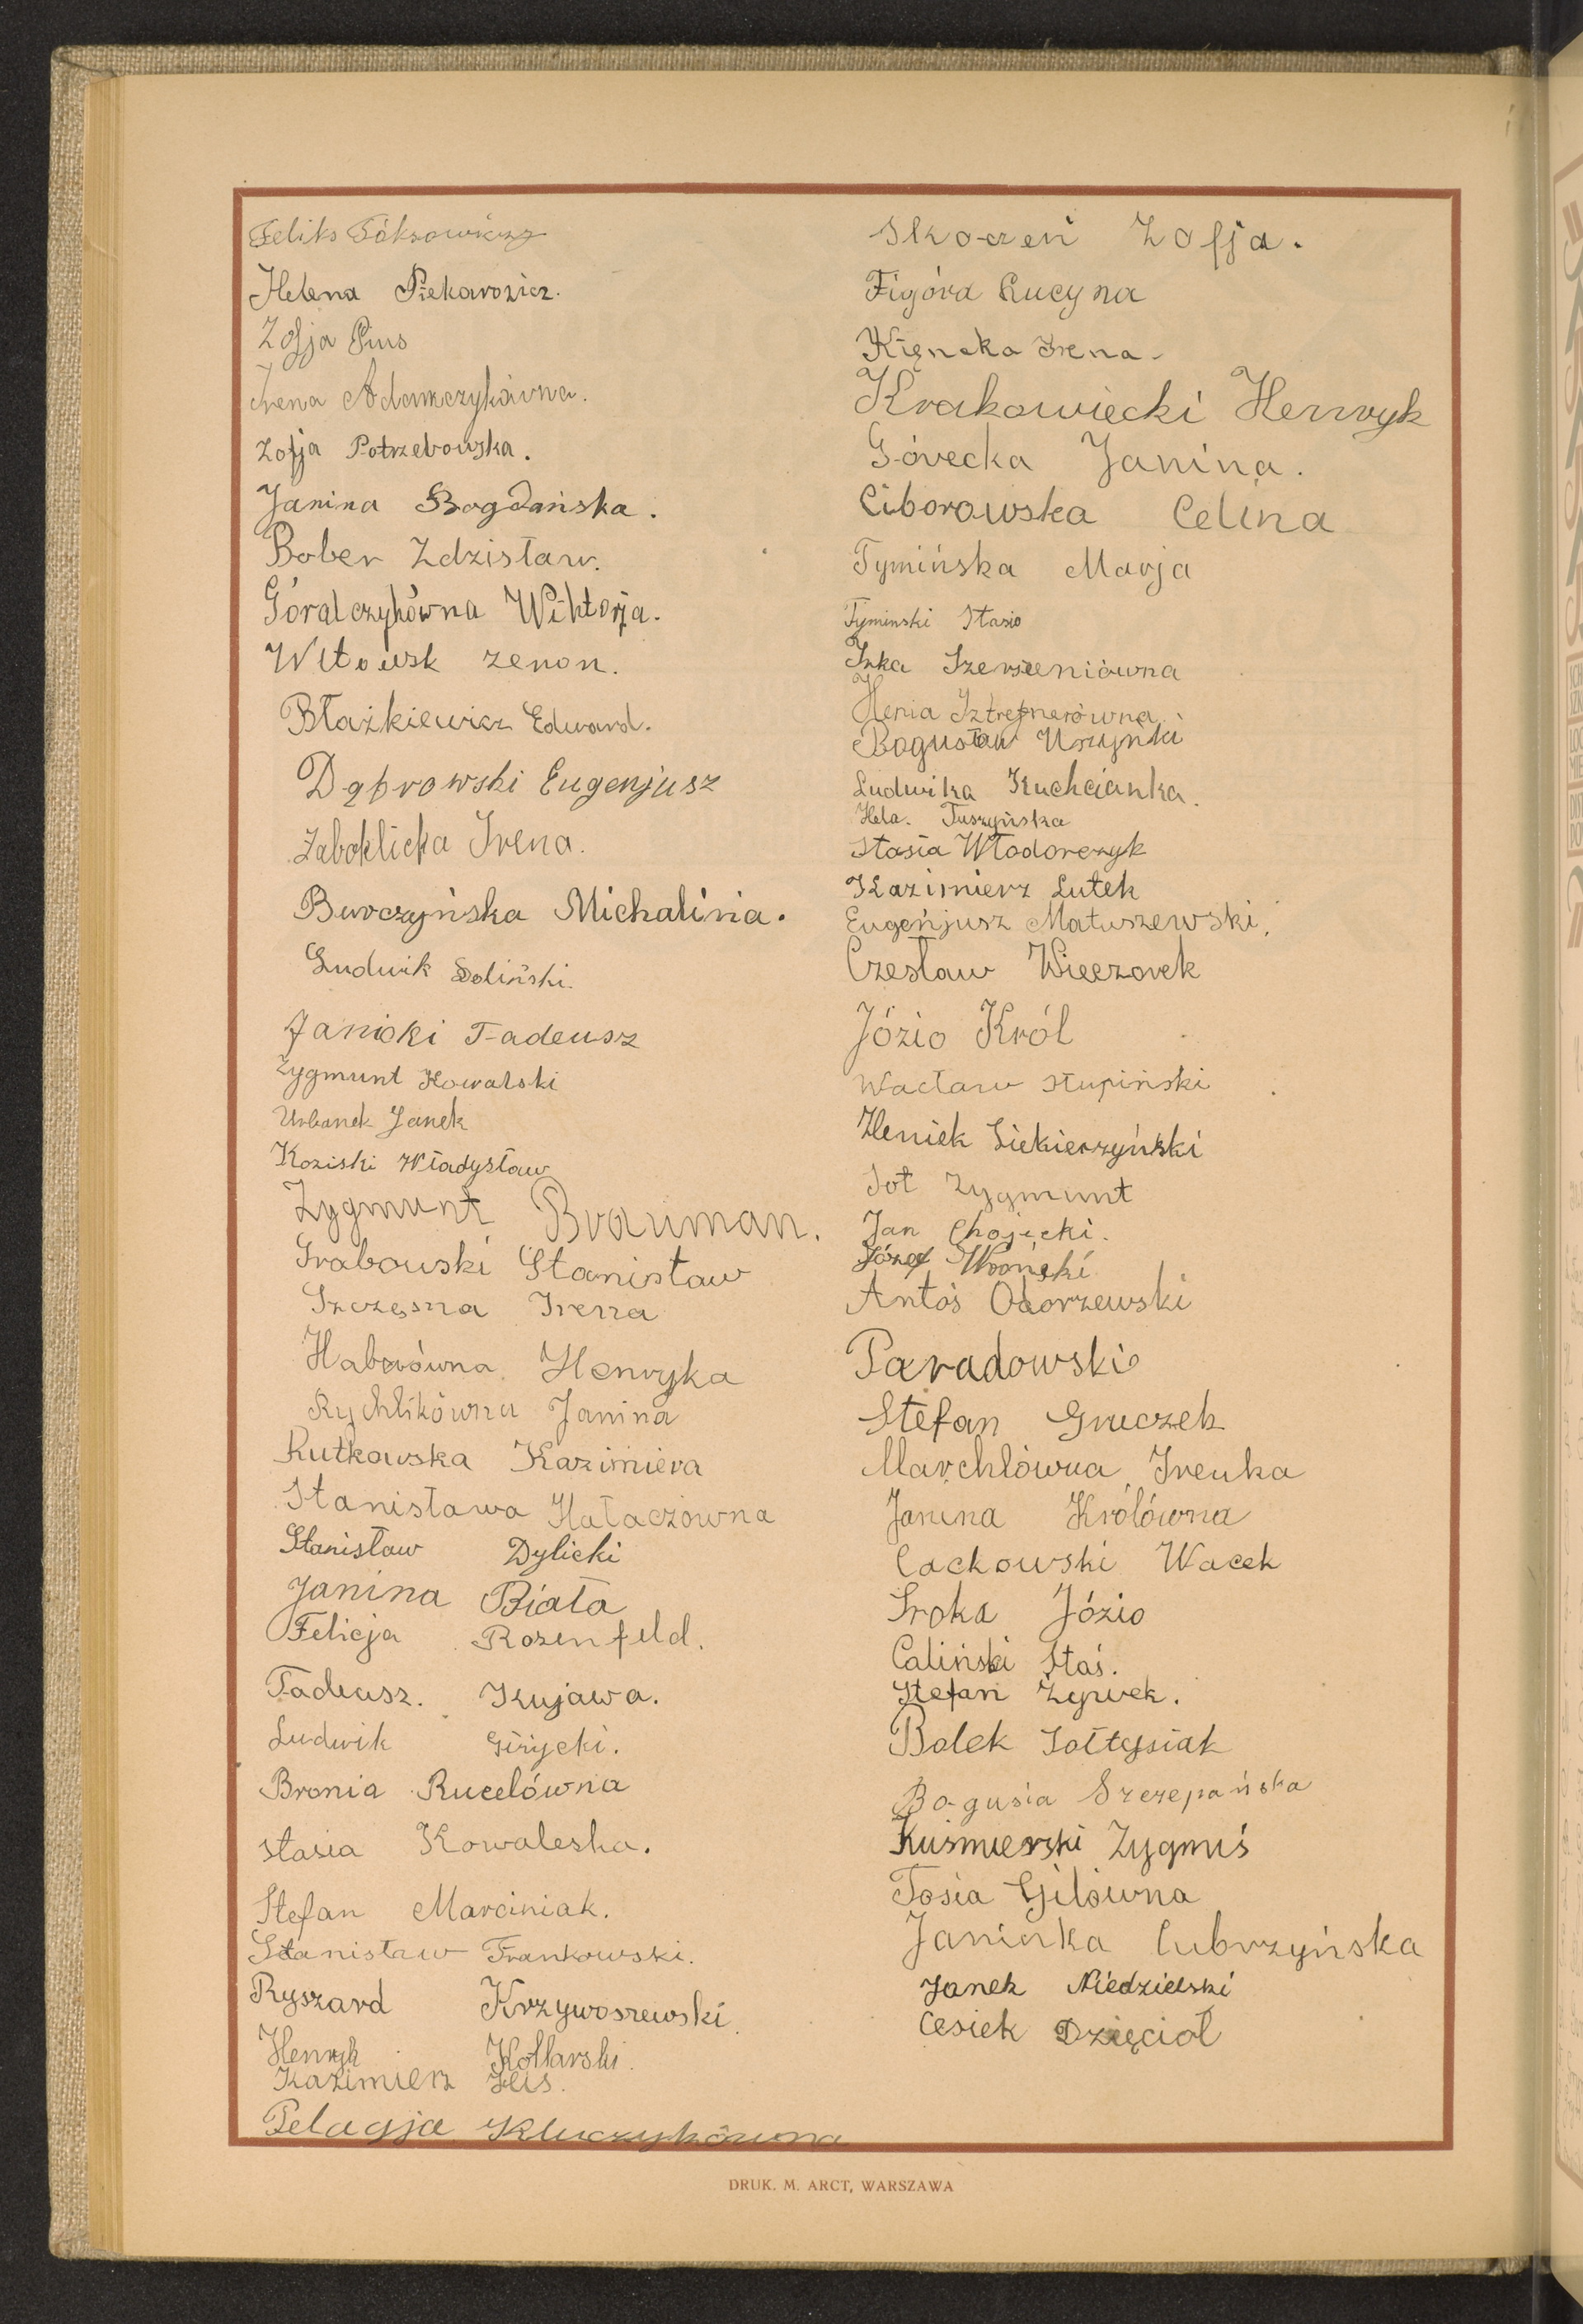 Feliks
Helena Piekarowicz.
Zofja Pius
Irena Adamczykówna.
Zofja Potrzebowska.
Janina Bogdańska.
Bober Zdzisław.
Góralczykówna Wiktorja.
Witowsk zenon.
Błażkiewicz Edward.
Dąbrowski Eugenjusz
Zaboklicka Irena.
Burczyńska Michalina.
Ludwik Soliński.
Janicki Tadeusz
Zygmunt Kowalski
Urbanek Janek
Koziski Władysław
Zygmunt Brauman.
Grabowski Stanisław
Szczęsna Irena
Haberówna Henryka
Rychlikówna Janina
Rutkowska Kazimiera
Stanisława Hałaczówna
Stanisław Dylicki
Janina Biała
Felicja Rozenfeld.
Tadeusz. Kujawa.
Ludwik Giżycki.
Bronia Rucelówna
Stasia Kowaleska.
Stefan Marciniak.
Stanisław Frankowski.
Ryszard Krzywoszewski.
Henryk Kotlarski.
Kazimierz Heis.
Pelagja Kluczykówna
Skoczeń Zofja.
Figóra Lucyna
Irena
Krakowiecki Henryk
Górecka Janina.
Ciborowska Celina
Tymińska Marja
Tyminski Stasio
Irka
Henia Sztrefnerówna
Bogusław Uszyński
Ludwika Kuchcianka.
Hela. Tuszyńska
Stasia Włodorczyk
Kazimierz Lutek
Eugeńjusz Matuszewski.
Czesław Wieczorek
Józio Król
Wacław Słupiński
Heniek Siekierzyński
Sot Zygmunt
Jan Chojecki.
Józef Wroński
Antoś Oborzewski
Paradowski
Stefan Gruczek
Marchlówna Irenka
Janina Królówna
Cackowski Wacek
Sroka Józio
Caliński Staś.
Stefan Żywek.
Bolek Sołtysiak
Bogusia Szczepańska
Kuśmierski Zygmuś
Tosia Gilówna
Janinka Cubrzyńska
Janek Niedzielski
Cesiek Dzięcioł
DRUK. M. ARCT, WARSZAWA